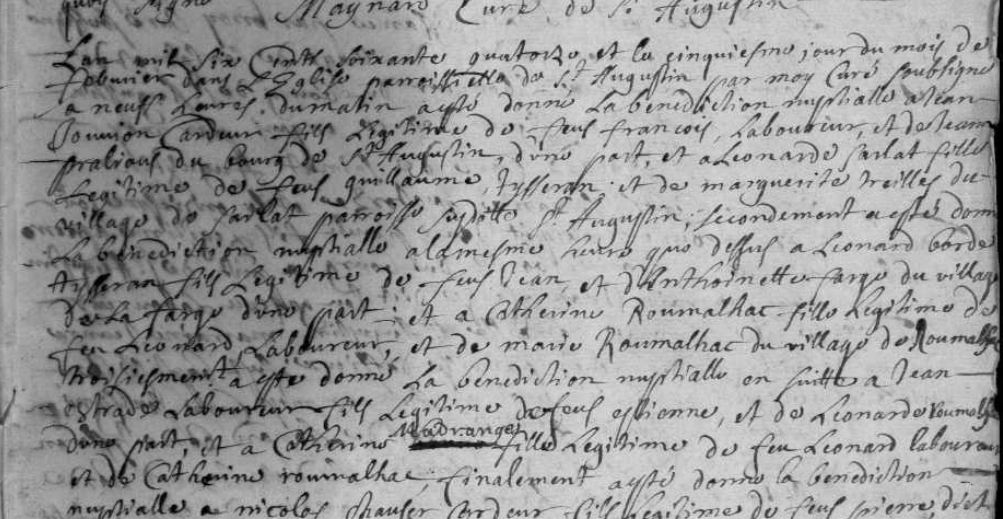 signé Maynard Curé de St Augustin
Lan mil six cents soixante quatorze et le cinquiesme jour du mois de
febvrier dans l'Eglise parroissielle de St Augustin par moy Curé soubsigné
a neufs heures du matin a esté donné la benediction nuptialle a Jean
Cardeur fils legitime de feus francois, Laboureur, et de Jeanne
du bourg de St Augustin, d'une part, et a Leonarde sarlat fille
Legitime de feus guillaume, tysseran, et de marguerite treilles du
village de sarlat parroisse susditte St Augustin; secondement a esté donné
La benediction nuptialle a la mesme heure que dessus a Leonard borde
tysseran fils Legitime de feus Jean, et d'Anthoinette farge du village
de La farge d'une part, et a Catherine Roumalhac fille Legitime de
feu Leonard Laboureur, et de marie Roumalhac du village de Roumalhac
troisiesment a esté donné La benediction nuptialle en suitte a Jean
estrade Laboureur fils Legitime de feus estienne, et de Leonarde roumalhac
d'une part, et a Catherine Madranges fille Legitime de feu Leonard laboureur
et de Catherine roumalhac, finalement a esté donné la benediction
nuptialle a nicolas Cardeur fils legitime de feus pierre, dict